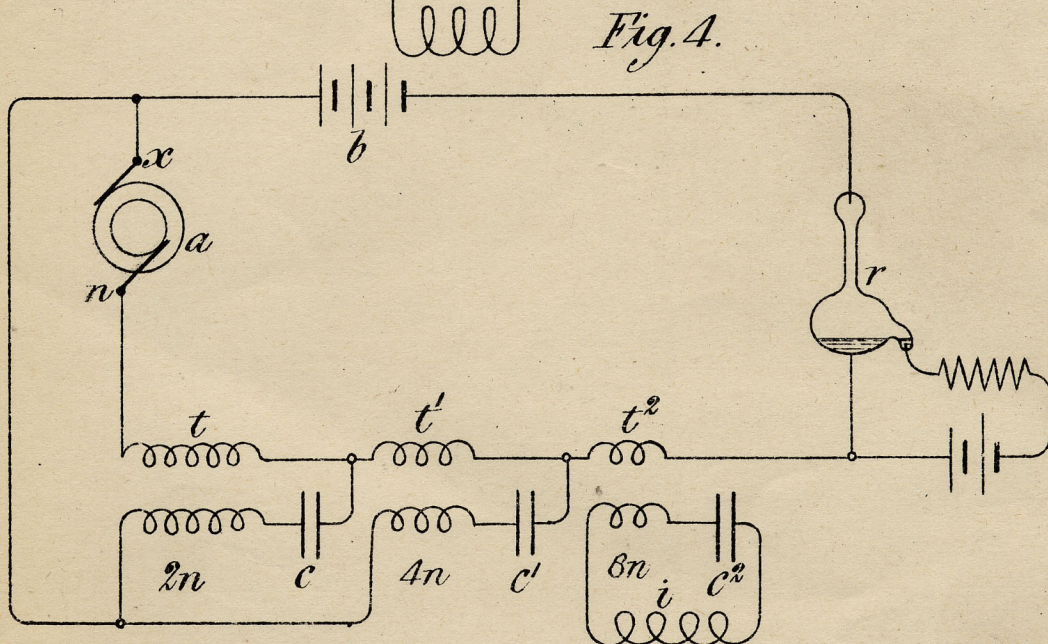 Fig. 4.
b
x
a
n
r
t t¹ t²
2n c 4n c¹ 8n c²
i